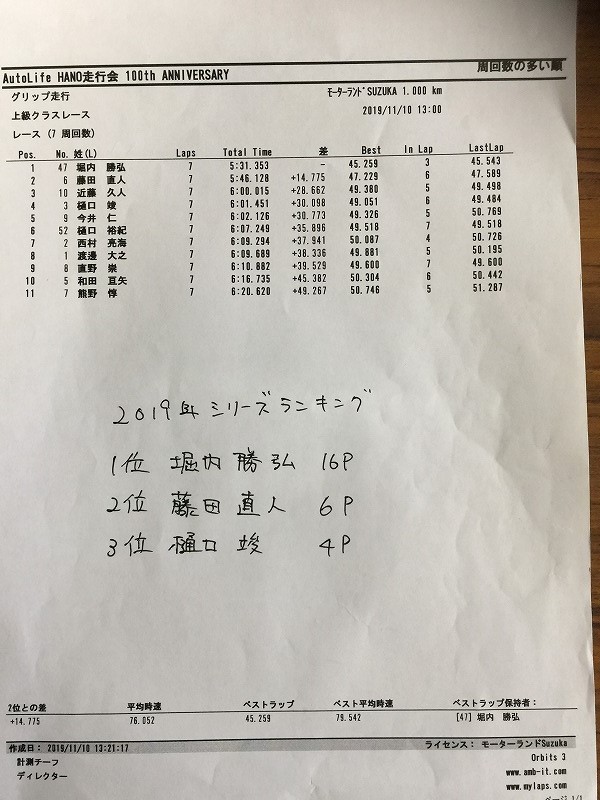 周回数の多い順
AutoLife HANO走行会 100th ANNIVERSARY
グリップ走行 モーターランドSUZUKA 1.000 km
上級クラスレース 2019/11/10 13:00
レース (7 周回数)
Pos. No. 姓(L) Laps Total Time 差 Best In Lap LastLap
1 47 堀内 勝弘 7 5:31.353 - 45.259 3 45.543
2 6 藤田 直人 7 5:46.128 +14.775 47.229 6 47.589
3 10 近藤 久人 7 6:00.015 +28.662 49.380 5 49.498
4 3 樋口 竣 7 6:01.451 +30.098 49.051 6 49.484
5 9 今井 仁 7 6:02.126 +30.773 49.326 5 50.769
6 52 樋口 裕紀 7 6:07.249 +35.896 49.518 7 49.518
7 2 西村 亮海 7 6:09.294 +37.941 50.087 4 50.726
8 1 渡邊 大之 7 6:09.689 +38.336 49.881 5 50.195
9 8 直野 崇 7 6:10.882 +39.529 49.600 7 49.600
10 5 和田 亘矢 7 6:16.735 +45.382 50.304 6 50.442
11 7 熊野 惇 7 6:20.620 +49.267 50.746 5 51.287
2019年シリーズランキング
1位 堀内 勝弘 16P
2位 藤田 直人 6P
3位 樋口 竣 4P
2位との差 平均時速 ベストラップ ベスト平均時速 ベストラップ保持者：
+14.775 76.052 45.259 79.542 [47] 堀内 勝弘
作成日： 2019/11/10 13:21:17 ライセンス： モーターランドSuzuka
計測チーフ Orbits 3
ディレクター www.amb-it.com
www.mylaps.com
ページ 1/1